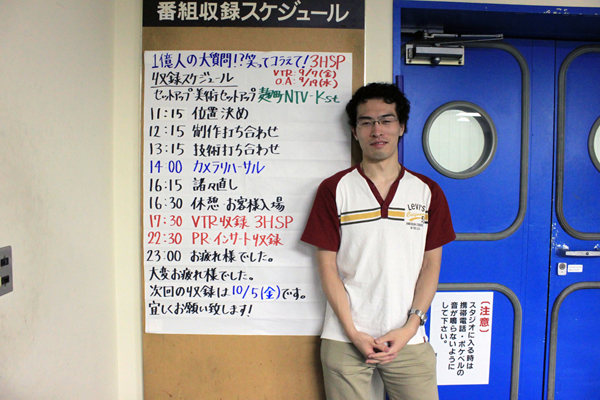 番組収録スケジュール
1億人の大質問!?笑ってコラえて!3HSP
収録スケジュール
VTR:9/7(金)
O.A:9/19(水)
セットアップ 美術セットアップ 麹町NTV-Kst
11:15 位置決め
12:15 制作打ち合わせ
13:15 技術打ち合わせ
14:00 カメラリハーサル
16:15 諸々直し
16:30 休憩 お客様入場
17:30 VTR収録 3HSP
22:30 PRインサート収録
23:00 お疲れ様でした。
大変お疲れ様でした。
次回の収録は10/5(金)です。
宜しくお願い致します!
Levi's
(注意)
スタジオに入る時は
携帯電話・ポケベルの
音が鳴らないように
して下さい。